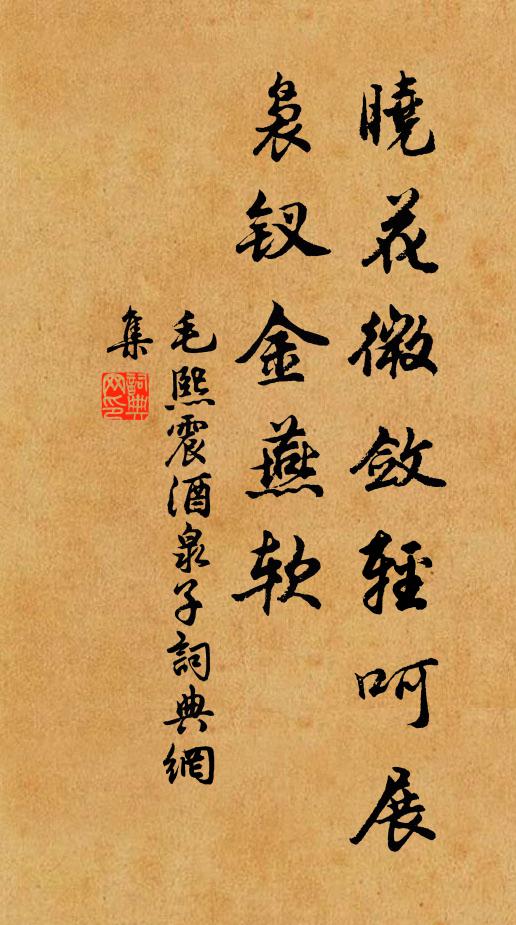 曉花微斂輕呵展
裊钗金燕軟
毛熙震酒泉子詞典網
集
詞典網印